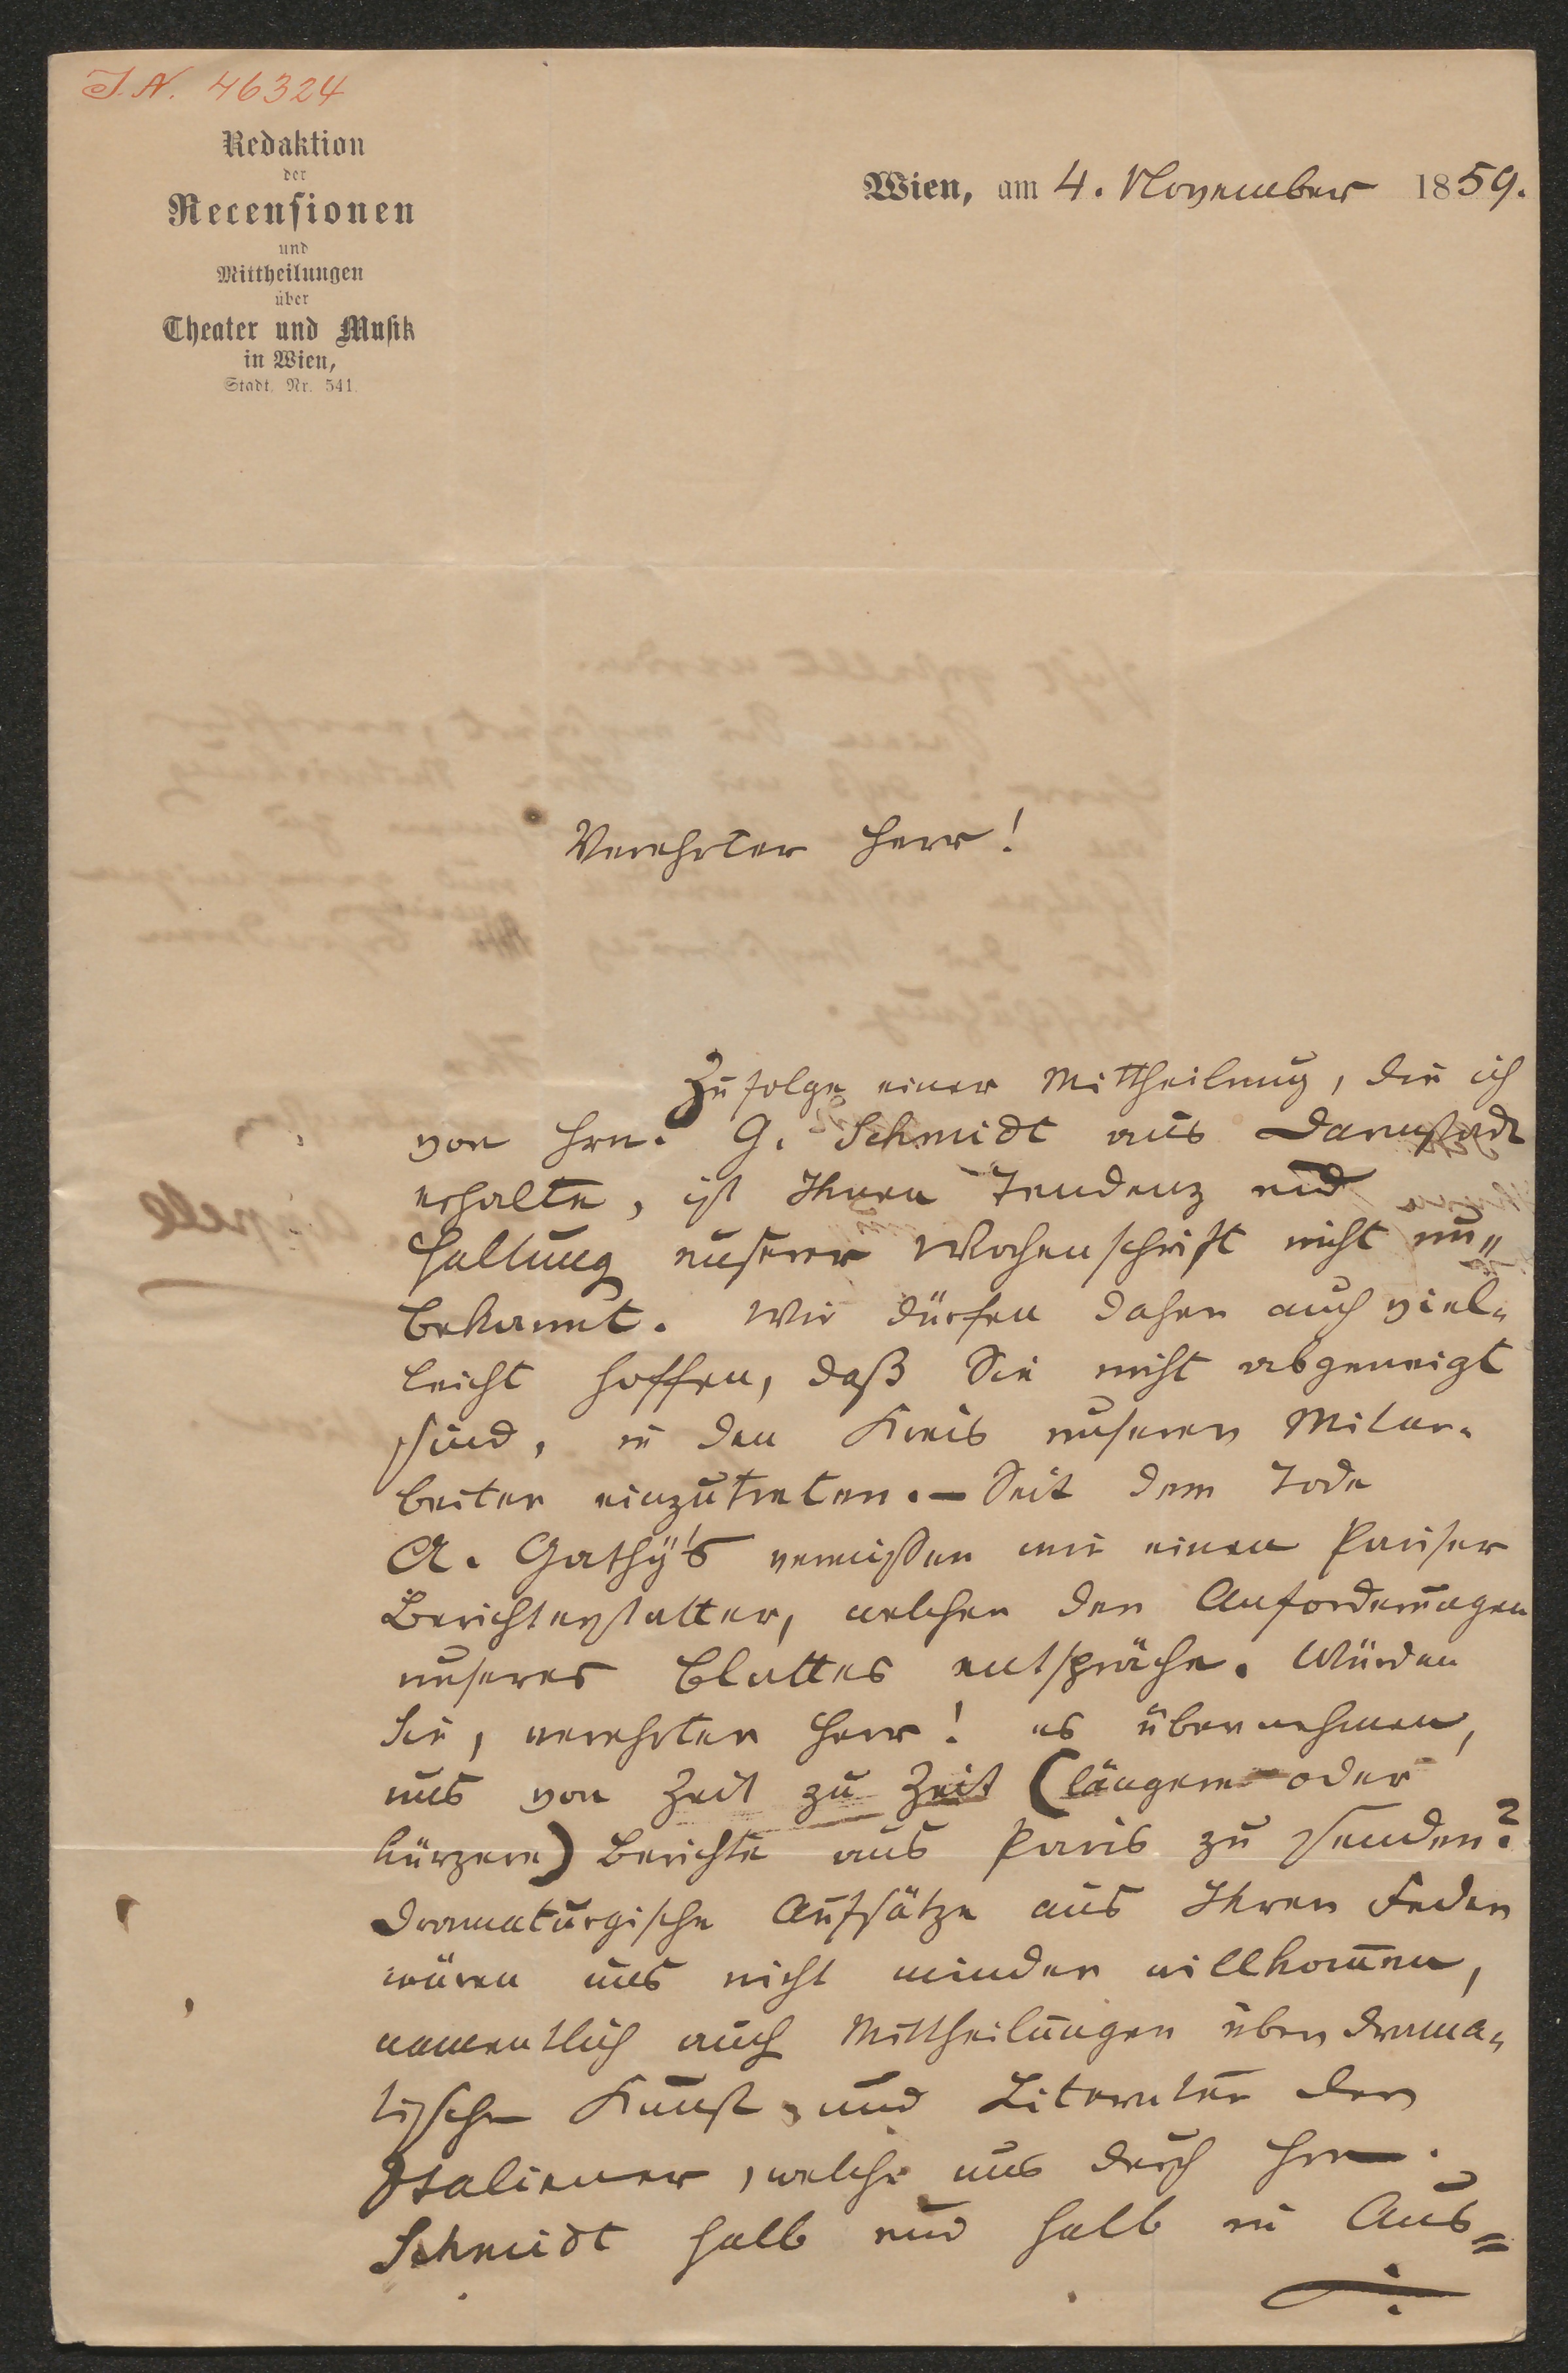 I. N. 46324
Redaktion
der
Recensionen
und
Mittheilungen
über
Theater und Musik
in Wien,
Stadt, Nr. 541.
Wien, am 4. November 1859.
Verehrter Herr!
Zufolge einer Mittheilung, die ich
von Hrn. G. Schmidt aus Darmstadt
erhalte, ist Ihnen Tendenz und
Haltung unserer Wochenschrift nicht un„
bekannt. Wir dürfen daher auch viel„
leicht hoffen, daß Sie nicht abgeneigt
sind, in den Kreis unserer Mitar„
beiter einzutreten. — Seit dem Tode
A. Gathÿ's vermissen wir einen Pariser
Berichterstatter, welcher den Anforderungen
unseres Blattes entspräche. Würden
Sie, verehrter Herr! es übernehmen,
uns von Zeit zu Zeit (längere oder
kürzere) Berichte aus Paris zu senden?
Dramaturgische Aufsätze aus Ihrer Feder
wären uns nicht minder willkom̅en,
namentlich auch Mittheilungen über drama„
tische Kunst und Literatur der
Italiener, welche uns durch Hrn.
Schmidt halb und halb in Aus=